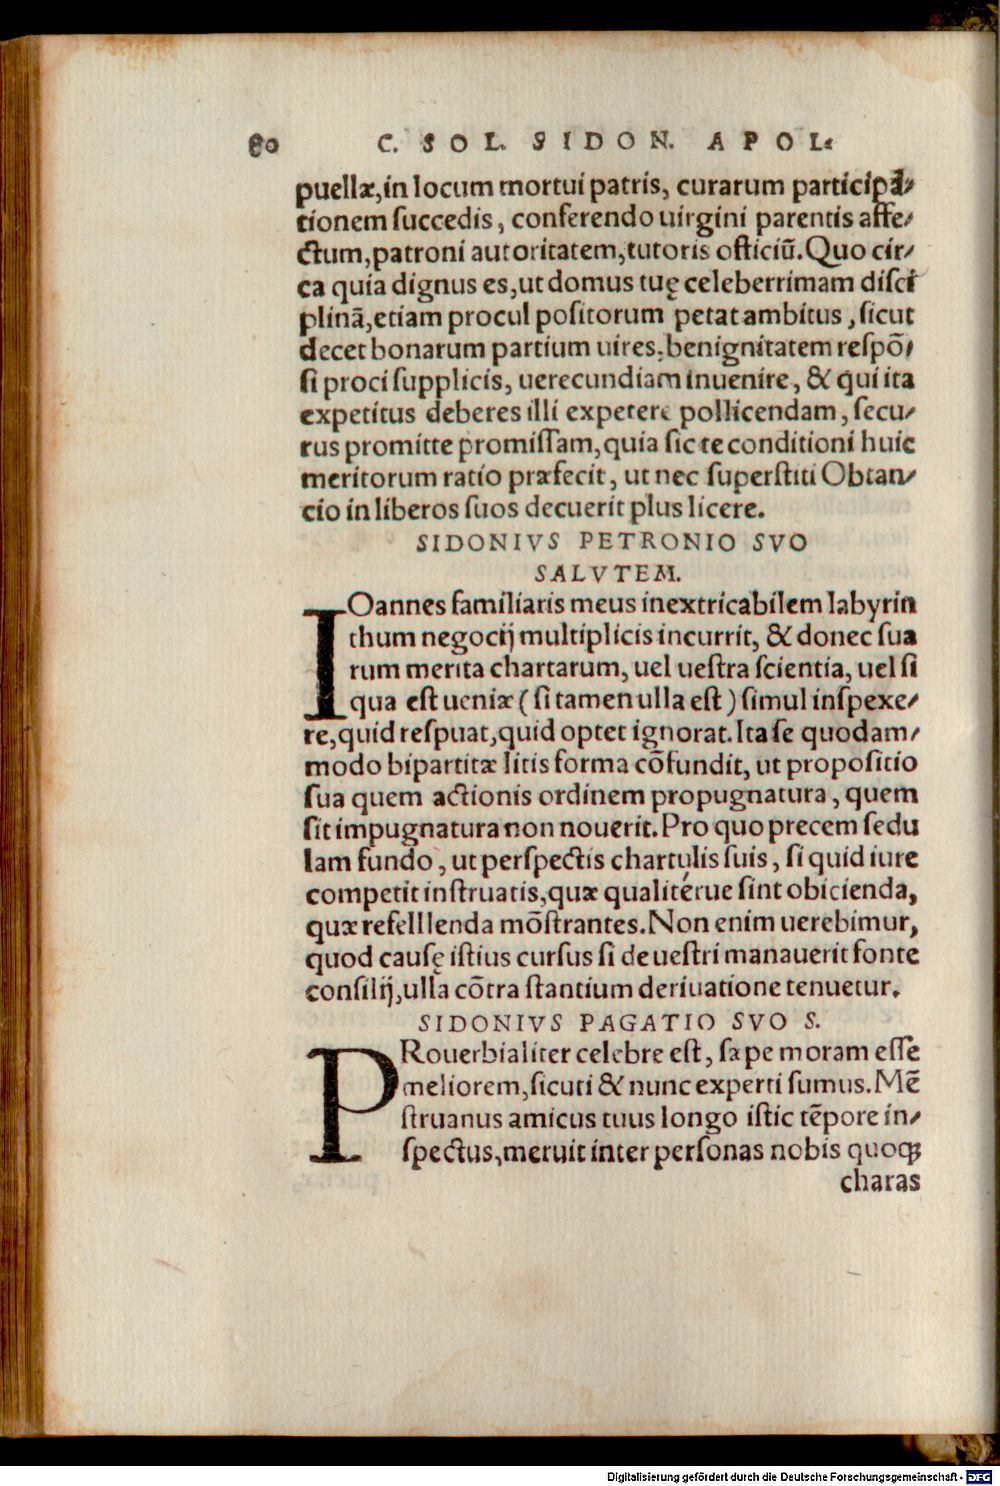 80 C. SOL. SIDON. APOL.
puellæ, in locum mortui patris, curarum participa-
tionem succedis, conferendo uirgini parentis affe-
ctum, patroni autoritatem, tutoris officiũ. Quo cir-
ca quia dignus es, ut domus tuę celeberrimam disci
plinã, etiam procul positorum petat ambitus, sicut
decet bonarum partium uires, benignitatem respõ-
si proci supplicis, uerecundiam inuenire, & qui ita
expetitus deberes illi expetere pollicendam, secu-
rus promitte promissam, quia sic te conditioni huic
meritorum ratio præfecit, ut nec superstiti Obtan-
cio in liberos suos decuerit plus licere.
SIDONIVS PETRONIO SVO
SALVTEM.
IOannes familiaris meus inextricabilem labyrin
thum negocij multiplicis incurrit, & donec sua
rum merita chartarum, uel uestra scientia, uel si
qua est ueniæ (si tamen ulla est) simul inspexe-
re, quid respuat, quid optet ignorat. Ita se quodam-
modo bipartitæ litis forma cõfundit, ut propositio
sua quem actionis ordinem propugnatura, quem
sit impugnatura non nouerit. Pro quo precem sedu
lam fundo, ut perspectis chartulis suis, si quid iure
competit instruatis, quæ qualitérue sint obicienda,
quæ refelllenda mõstrantes. Non enim uerebimur,
quod causę istius cursus si de uestri manauerit fonte
consilij, ulla cõtra stantium deriuatione tenuetur.
SIDONIVS PAGATIO SVO S.
PRouerbialiter celebre est, sæpe moram esse
meliorem, sicuti & nunc experti sumus. Mẽ
struanus amicus tuus longo istic tẽpore in-
spectus, meruit inter personas nobis quoq;
charas
Digitalisierung gefördert durch die Deutsche Forschungsgemeinschaft - DFG